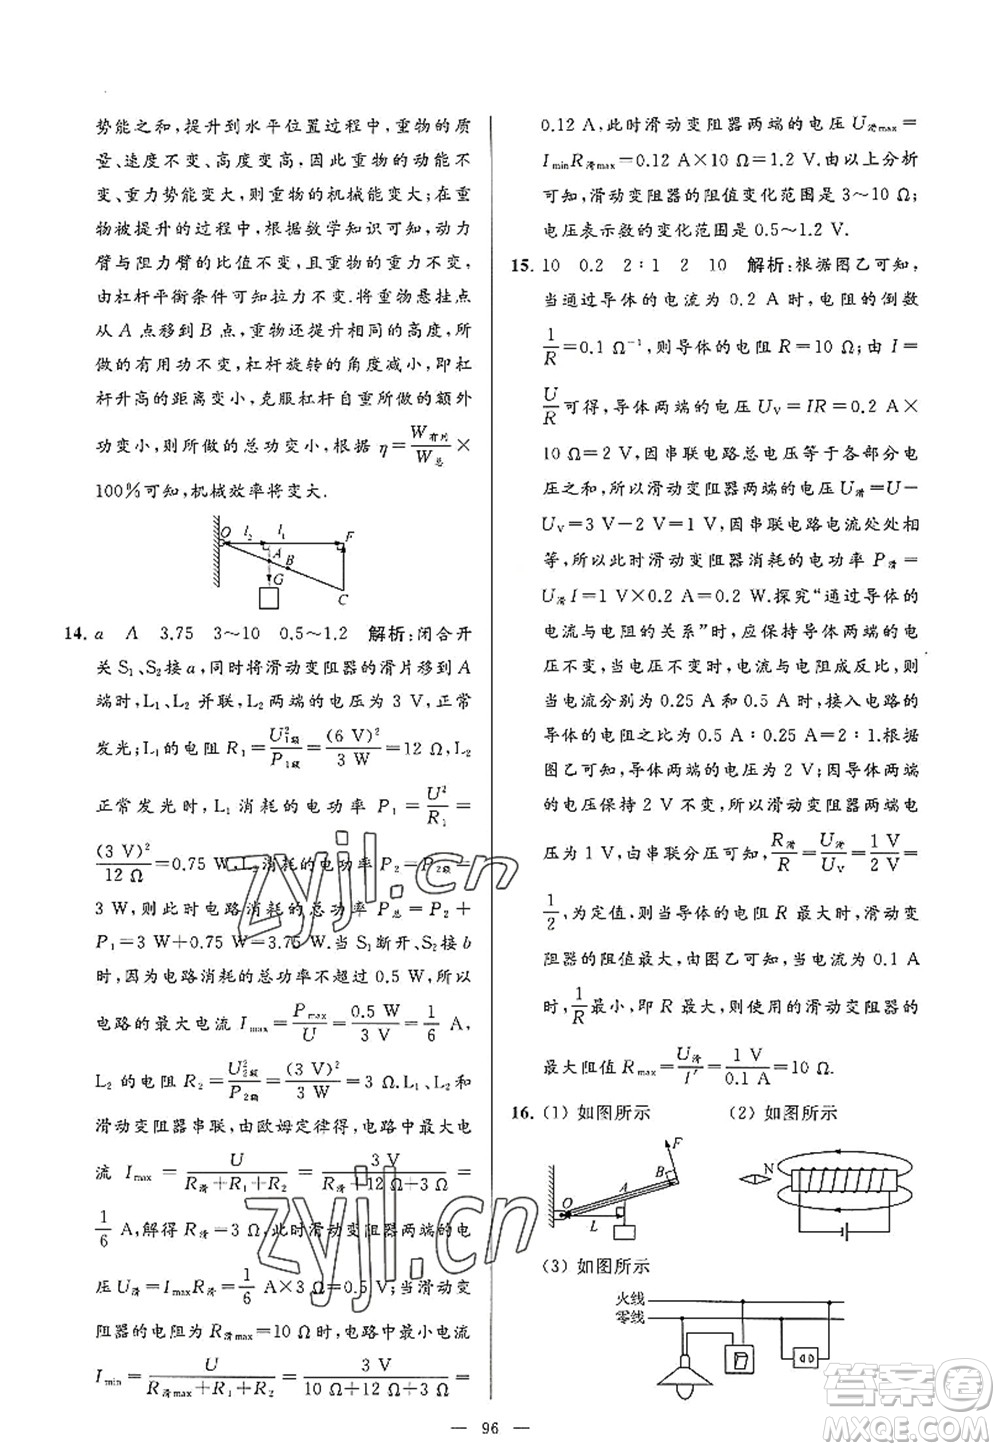 势能之和,提升到水平位置过程中,重物的质
量、速度不变、高度变大,因此重物的动能不
变、重力势能变大,则重物的机械能变大;在重
物被提升的过程中,根据数学知识可知,动力
臂与阻力臂的比值不变,且重物的重力不变,
由杠杆平衡条件可知拉力不变.将重物悬挂点
从 A 点移到 B 点,重物还提升相同的高度,所
做的有用功不变,杠杆旋转的角度减小,即杠
杆升高的距离变小,克服杠杆自重所做的额外
功变小,则所做的总功变小,根据 η=W有用/W总×
100%可知,机械效率将变大.
O l₂ l₁ F
A B
G
C
14. a A 3.75 3~10 0.5~1.2 解析:闭合开
关 S₁、S₂接 a,同时将滑动变阻器的滑片移到 A
端时,L₁、L₂ 并联,L₂ 两端的电压为 3 V,正常
发光;L₁的电阻 R₁=U²₁额/P₁额=(6 V)²/3 W=12 Ω,L₂
正常发光时,L₁ 消耗的电功率 P₁=U²/R₁=
(3 V)²/12 Ω=0.75 W,L₂消耗的电功率 P₂=P₂额=
3 W,则此时电路消耗的总功率 P总=P₂+
P₁=3 W+0.75 W=3.75 W.当 S₁断开、S₂接 b
时,因为电路消耗的总功率不超过 0.5 W,所以
电路的最大电流 Imax=Pmax/U=0.5 W/3 V=1/6 A,
L₂ 的电阻 R₂=U²₂额/P₂额=(3 V)²/3 W=3 Ω,L₁、L₂和
滑动变阻器串联,由欧姆定律得,电路中最大电
流 Imax=U/(R滑+R₁+R₂)=3 V/(R滑+12 Ω+3 Ω)=
1/6 A,解得 R滑=3 Ω,此时滑动变阻器两端的电
压 U滑=ImaxR滑=1/6 A×3 Ω=0.5 V;当滑动变
阻器的电阻为 R滑max=10 Ω时,电路中最小电流
Imin=U/(R滑max+R₁+R₂)=3 V/(10 Ω+12 Ω+3 Ω)=
0.12 A,此时滑动变阻器两端的电压 U滑max=
IminR滑max=0.12 A×10 Ω=1.2 V.由以上分析
可知,滑动变阻器的阻值变化范围是 3~10 Ω;
电压表示数的变化范围为 0.5~1.2 V.
15. 10 0.2 2∶1 2 10 解析:根据图乙可知,
当通过导体的电流为 0.2 A 时,电阻的倒数
1/R=0.1 Ω⁻¹,则导体的电阻 R=10 Ω;由 I=
U/R可得,导体两端的电压 UV=IR=0.2 A×
10 Ω=2 V.因串联电路总电压等于各部分电
压之和,所以滑动变阻器两端的电压 U滑=U-
UV=3 V-2 V=1 V,因串联电路电流处处相
等,所以此时滑动变阻器消耗的电功率 P滑=
U滑I=1 V×0.2 A=0.2 W.探究“通过导体的
电流与电阻的关系”时,应保持导体两端的电
压不变,当电压不变时,电流与电阻成反比,则
当电流分别为 0.25 A和 0.5 A时,接入电路的
导体的电阻之比为 0.5 A∶0.25 A=2∶1.根据
图乙可知,导体两端的电压为 2 V;因导体两端
的电压保持 2 V不变,所以滑动变阻器两端电
压为 1 V,由串联分压可知,R滑/R=U滑/UV=1 V/2 V=
1/2,为定值.则当导体的电阻 R 最大时,滑动变
阻器的阻值最大,由图乙可知,当电流为 0.1 A
时,1/R最小,即 R 最大,则使用的滑动变阻器的
最大阻值 Rmax=U滑/I′=1 V/0.1 A=10 Ω.
16. (1) 如图所示 (2) 如图所示
F
B
A
O
L
N
(3) 如图所示
火线
零线
zyjl.cn
zyjl.cn
答案圈
MXQE.COM
— 96 —